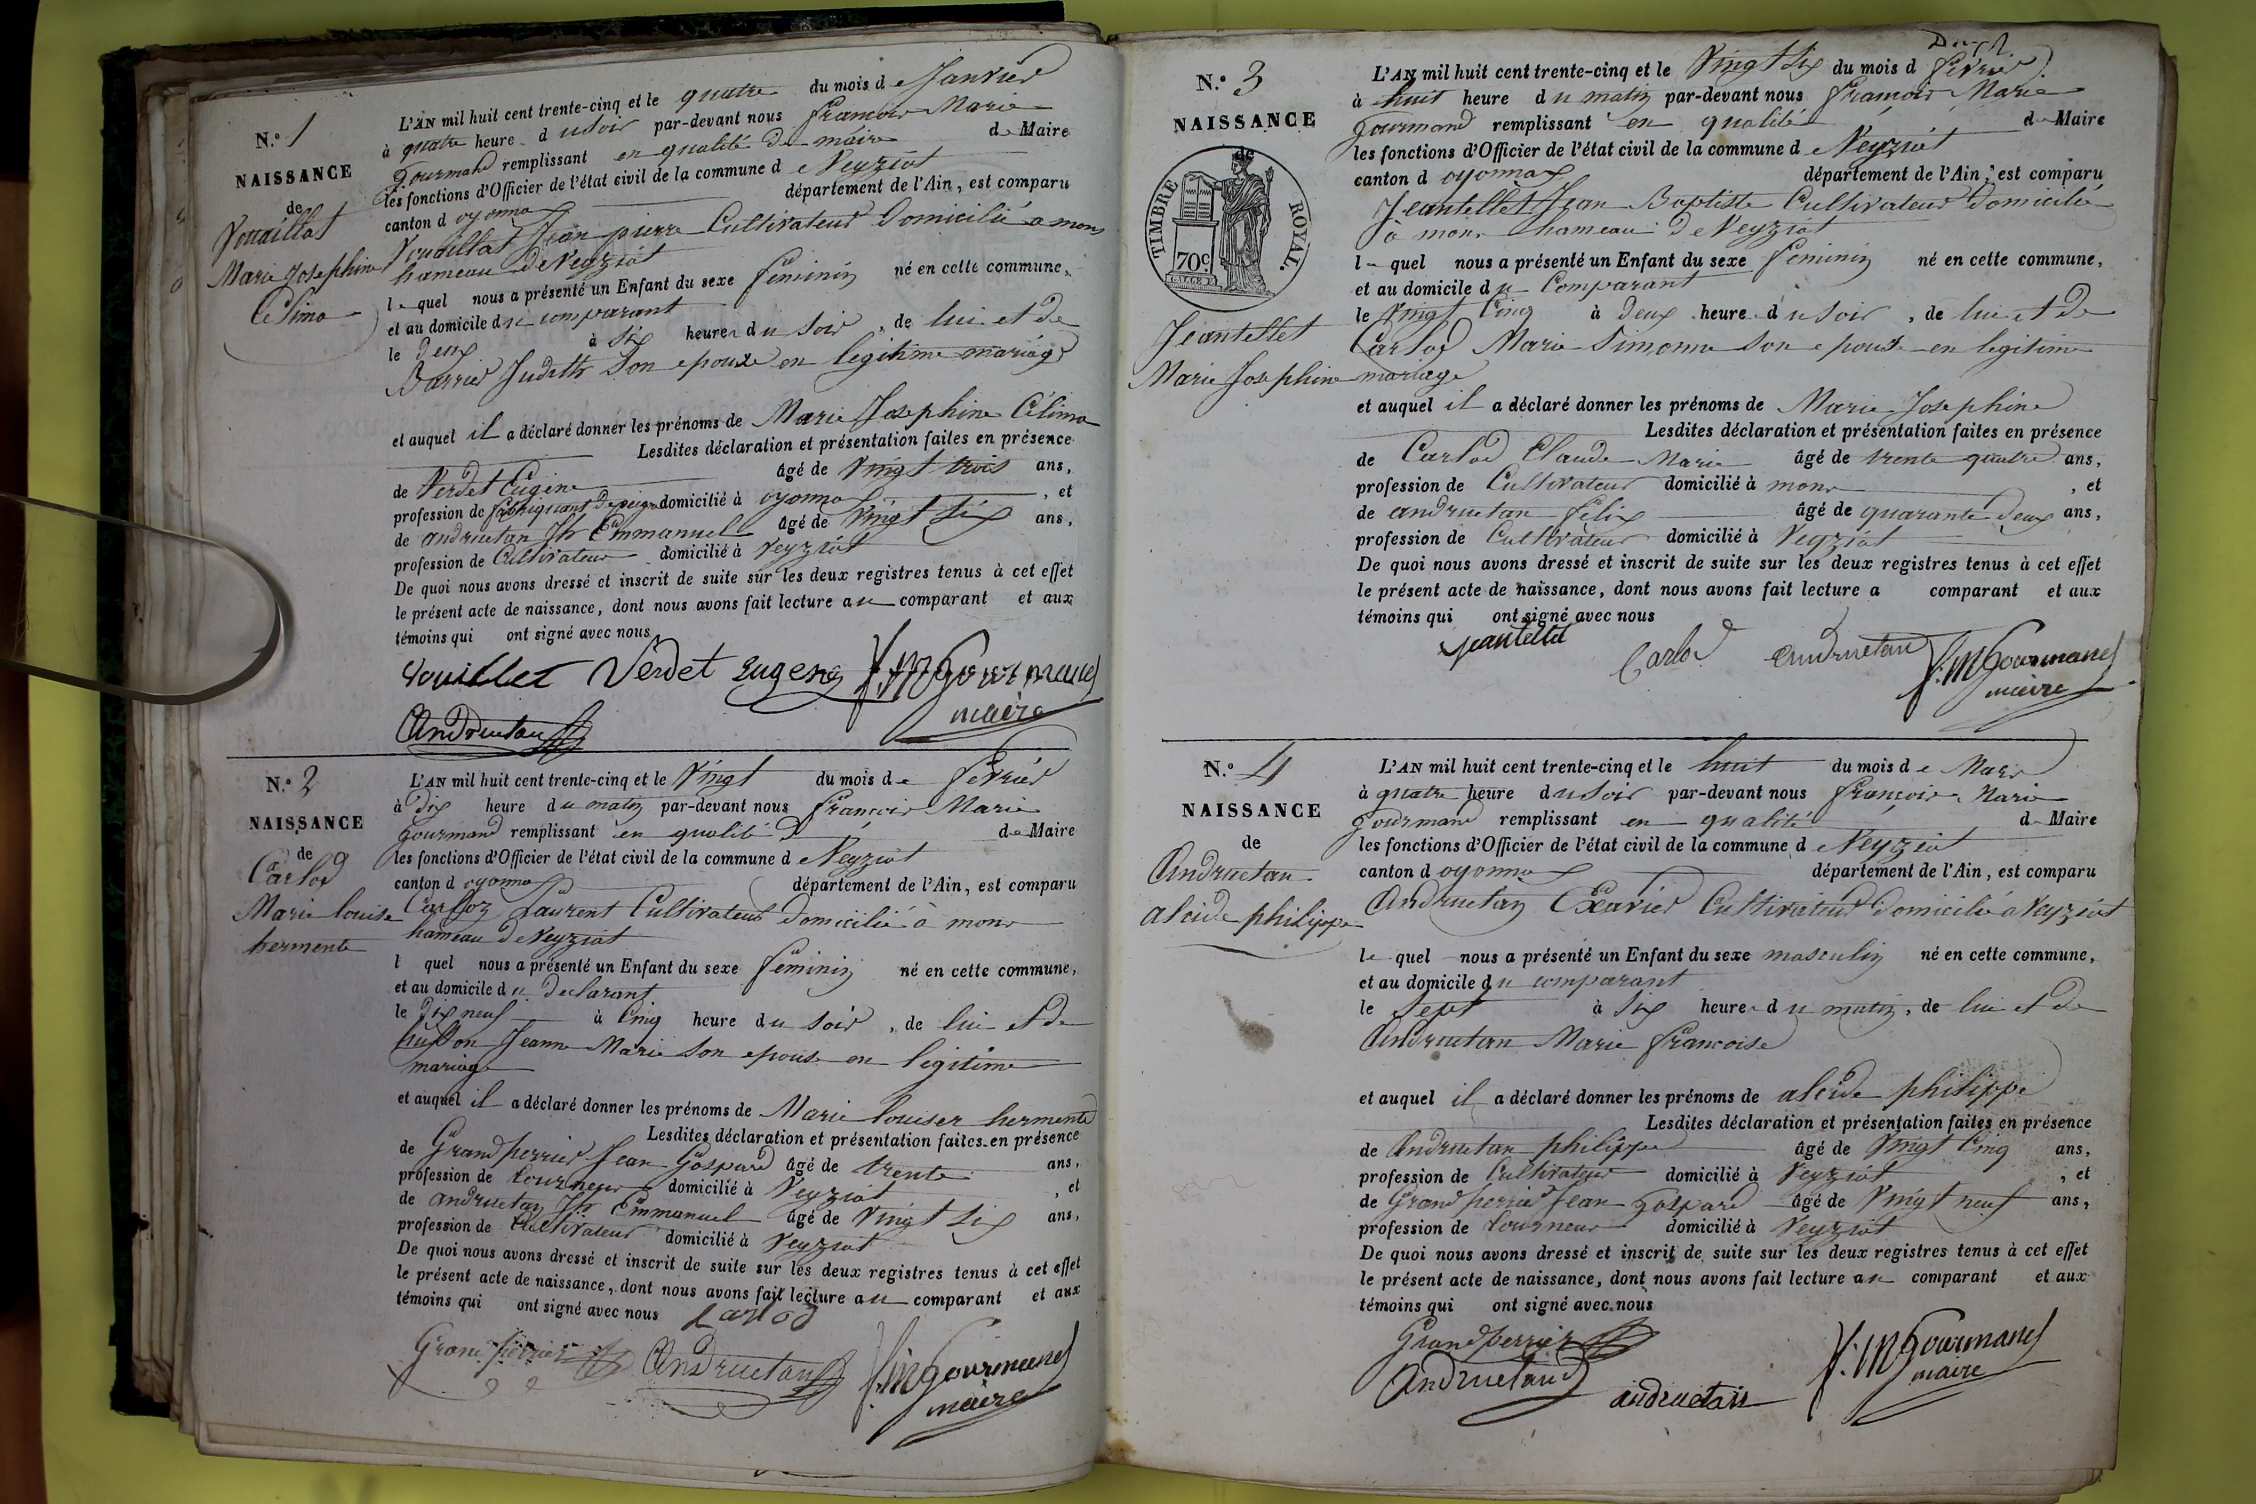 N.° 1
NAISSANCE
de
Vouaillat
Marie Josephine
Célima
L'AN mil huit cent trente-cinq et le quatre du mois de Janvier
à quatre heure du soir par-devant nous françois Marie
Gourmand remplissant en qualité de maire de Maire
les fonctions d'Officier de l'état civil de la commune de Veyziat
canton d oyonnax département de l'Ain, est comparu
Vouaillat Jean pierre Cultivateur Domicilié a mons
hameau de Veyziat
le quel nous a présenté un Enfant du sexe féminin né en cette commune,
et au domicile du comparant
le deux à six heures du soir, de lui et de
Barrier Judith son epouse en legitime mariage
et auquel il a déclaré donner les prénoms de Marie Josephine Célima
Lesdites déclaration et présentation faites en présence
de Verdet Eugène âgé de vingt trois ans,
profession de fabriquant de peigne domicilié à oyonnax, et
de andruetan Jh Emmanuel âgé de vingt six ans,
profession de Cultivateur domicilié à Veyziat
De quoi nous avons dressé et inscrit de suite sur les deux registres tenus à cet effet
le présent acte de naissance, dont nous avons fait lecture au comparant et aux
témoins qui ont signé avec nous
Vouillet Verdet Eugene f. m Gourmand
maire
Andruetan
N.° 2
NAISSANCE
de
Carlod
Marie louise
hermente
L'AN mil huit cent trente-cinq et le Vingt du mois de février
à Dix heure du matin par-devant nous françois Marie
Gourmand remplissant en qualité d de Maire
les fonctions d'Officier de l'état civil de la commune de Veyziat
canton d oyonnax département de l'Ain, est comparu
Carloz Laurent Cultivateur Domicilié à mons
hameau de Veyziat
l quel nous a présenté un Enfant du sexe féminin né en cette commune,
et au domicile du Declarant
le Dix neuf à Cinq heure du soir, de lui et de
husson Jeanne Marie son epouse en legitime
mariage
et auquel il a déclaré donner les prénoms de Marie louiser hermente
Lesdites déclaration et présentation faites en présence
de Grandperrier Jean Gaspard âgé de trente ans,
profession de tourneur domicilié à Veyziat, et
de andruetan Jh Emmanuel âgé de vingt six ans,
profession de Cultivateur domicilié à Veyziat
De quoi nous avons dressé et inscrit de suite sur les deux registres tenus à cet effet
le présent acte de naissance, dont nous avons fait lecture au comparant et aux
témoins qui ont signé avec nous Carlod
Grand perrier Andruetan f. m Gourmand
maire
N.° 3
NAISSANCE
de
TIMBRE ROYAL.
70c.
Jeantellet
Marie Josephine
L'AN mil huit cent trente-cinq et le Vingt Six du mois d février
à huit heure du matin par-devant nous françois Marie
Gourmand remplissant en qualité de Maire
les fonctions d'Officier de l'état civil de la commune de Veyziat
canton d oyonnax département de l'Ain, est comparu
Jeantellet Jean Baptiste Cultivateur Domicilié
à mons hameau de Veyziat
le quel nous a présenté un Enfant du sexe féminin né en cette commune,
et au domicile du Comparant
le Vingt Cinq à Deux heure du soir, de lui et de
Carlod Marie Simonne son epouse en legitime
mariage
et auquel il a déclaré donner les prénoms de Marie Josephine
Lesdites déclaration et présentation faites en présence
de Carlod Claude Marie âgé de trente quatre ans,
profession de Cultivateur domicilié à mons, et
de andruetan félix âgé de quarante Deux ans,
profession de Cultivateur domicilié à Veyziat
De quoi nous avons dressé et inscrit de suite sur les deux registres tenus à cet effet
le présent acte de naissance, dont nous avons fait lecture a comparant et aux
témoins qui ont signé avec nous
Jeantellet
Carlod andruetan f. m Gourmand
maire
N.° 4
NAISSANCE
de
Andruetan
alcide philippe
L'AN mil huit cent trente-cinq et le huit du mois de Mars
à quatre heure du soir par-devant nous françois Marie
Gourmand remplissant en qualité d Maire
les fonctions d'Officier de l'état civil de la commune d Veyziat
canton d oyonnax département de l'Ain, est comparu
Andruetan Exavier Cultivateur Domicilié à Veyziat
le quel nous a présenté un Enfant du sexe masculin né en cette commune,
et au domicile du comparant
le Sept à Six heure du matin, de lui et de
Andruetan Marie françoise
et auquel il a déclaré donner les prénoms de alcide philippe
Lesdites déclaration et présentation faites en présence
de Andruetan philippe âgé de Vingt Cinq ans,
profession de Cultivateur domicilié à Veyziat, et
de Grand perrier Jean gaspard âgé de Vingt neuf ans,
profession de tourneur domicilié à Veyziat
De quoi nous avons dressé et inscrit de suite sur les deux registres tenus à cet effet
le présent acte de naissance, dont nous avons fait lecture au comparant et aux
témoins qui ont signé avec nous
Grandperrier f. m Gourmand
maire
Andruetand andruetan